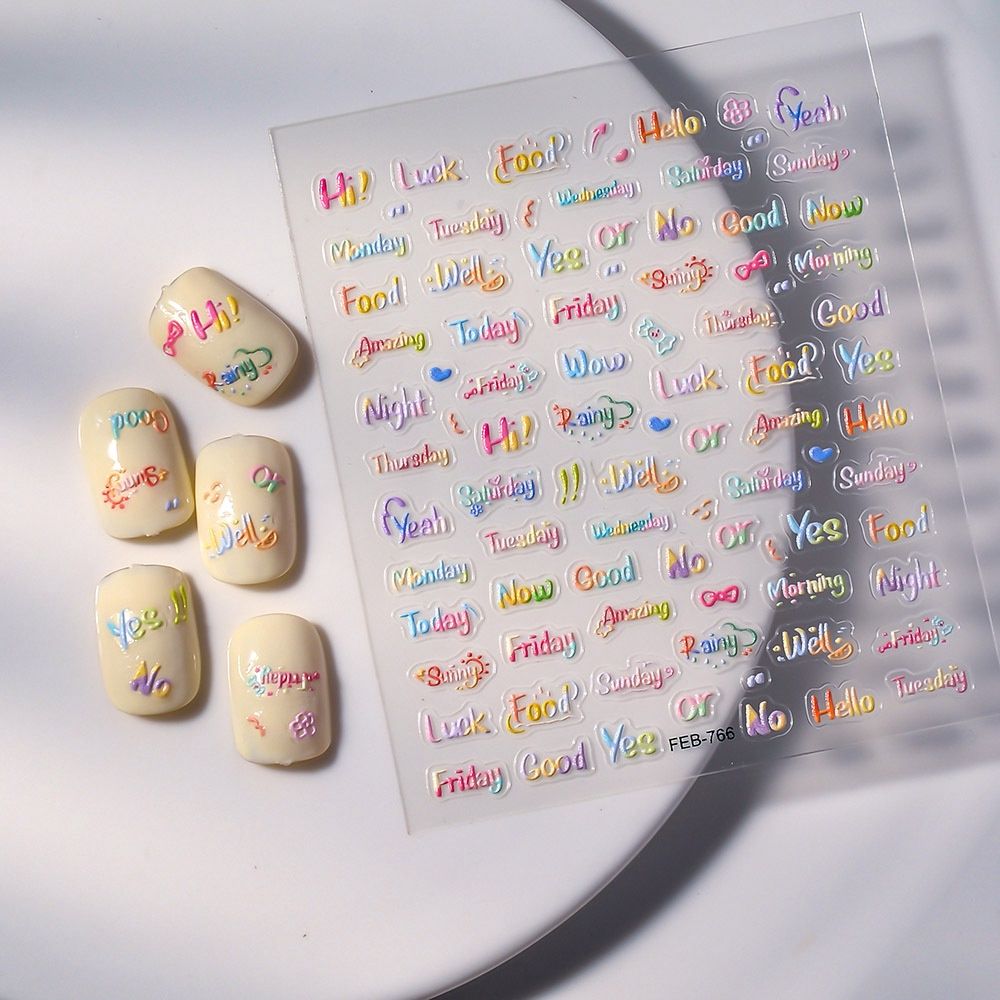 Hi! Luck Food Hello Yeah
Wednesday Saturday Sunday
Monday Tuesday Yes or No Good Now
Food Well Sunny Morning
Amazing Today Friday Thursday Good
Night Friday Wow Luck Food Yes
Thursday Hi! Rainy or Amazing Hello
Yeah Saturday !! Well Saturday Sunday
Tuesday Wednesday or Yes Food
Monday Now Good No Morning Night
Today Friday Amazing Rainy Well Friday
Sunny Sunday Tuesday
Luck Food or No Hello
Friday Good Yes FEB-766
Hi!
Rainy
Good
Sunny
or
Well
Yes !!
No
Friday